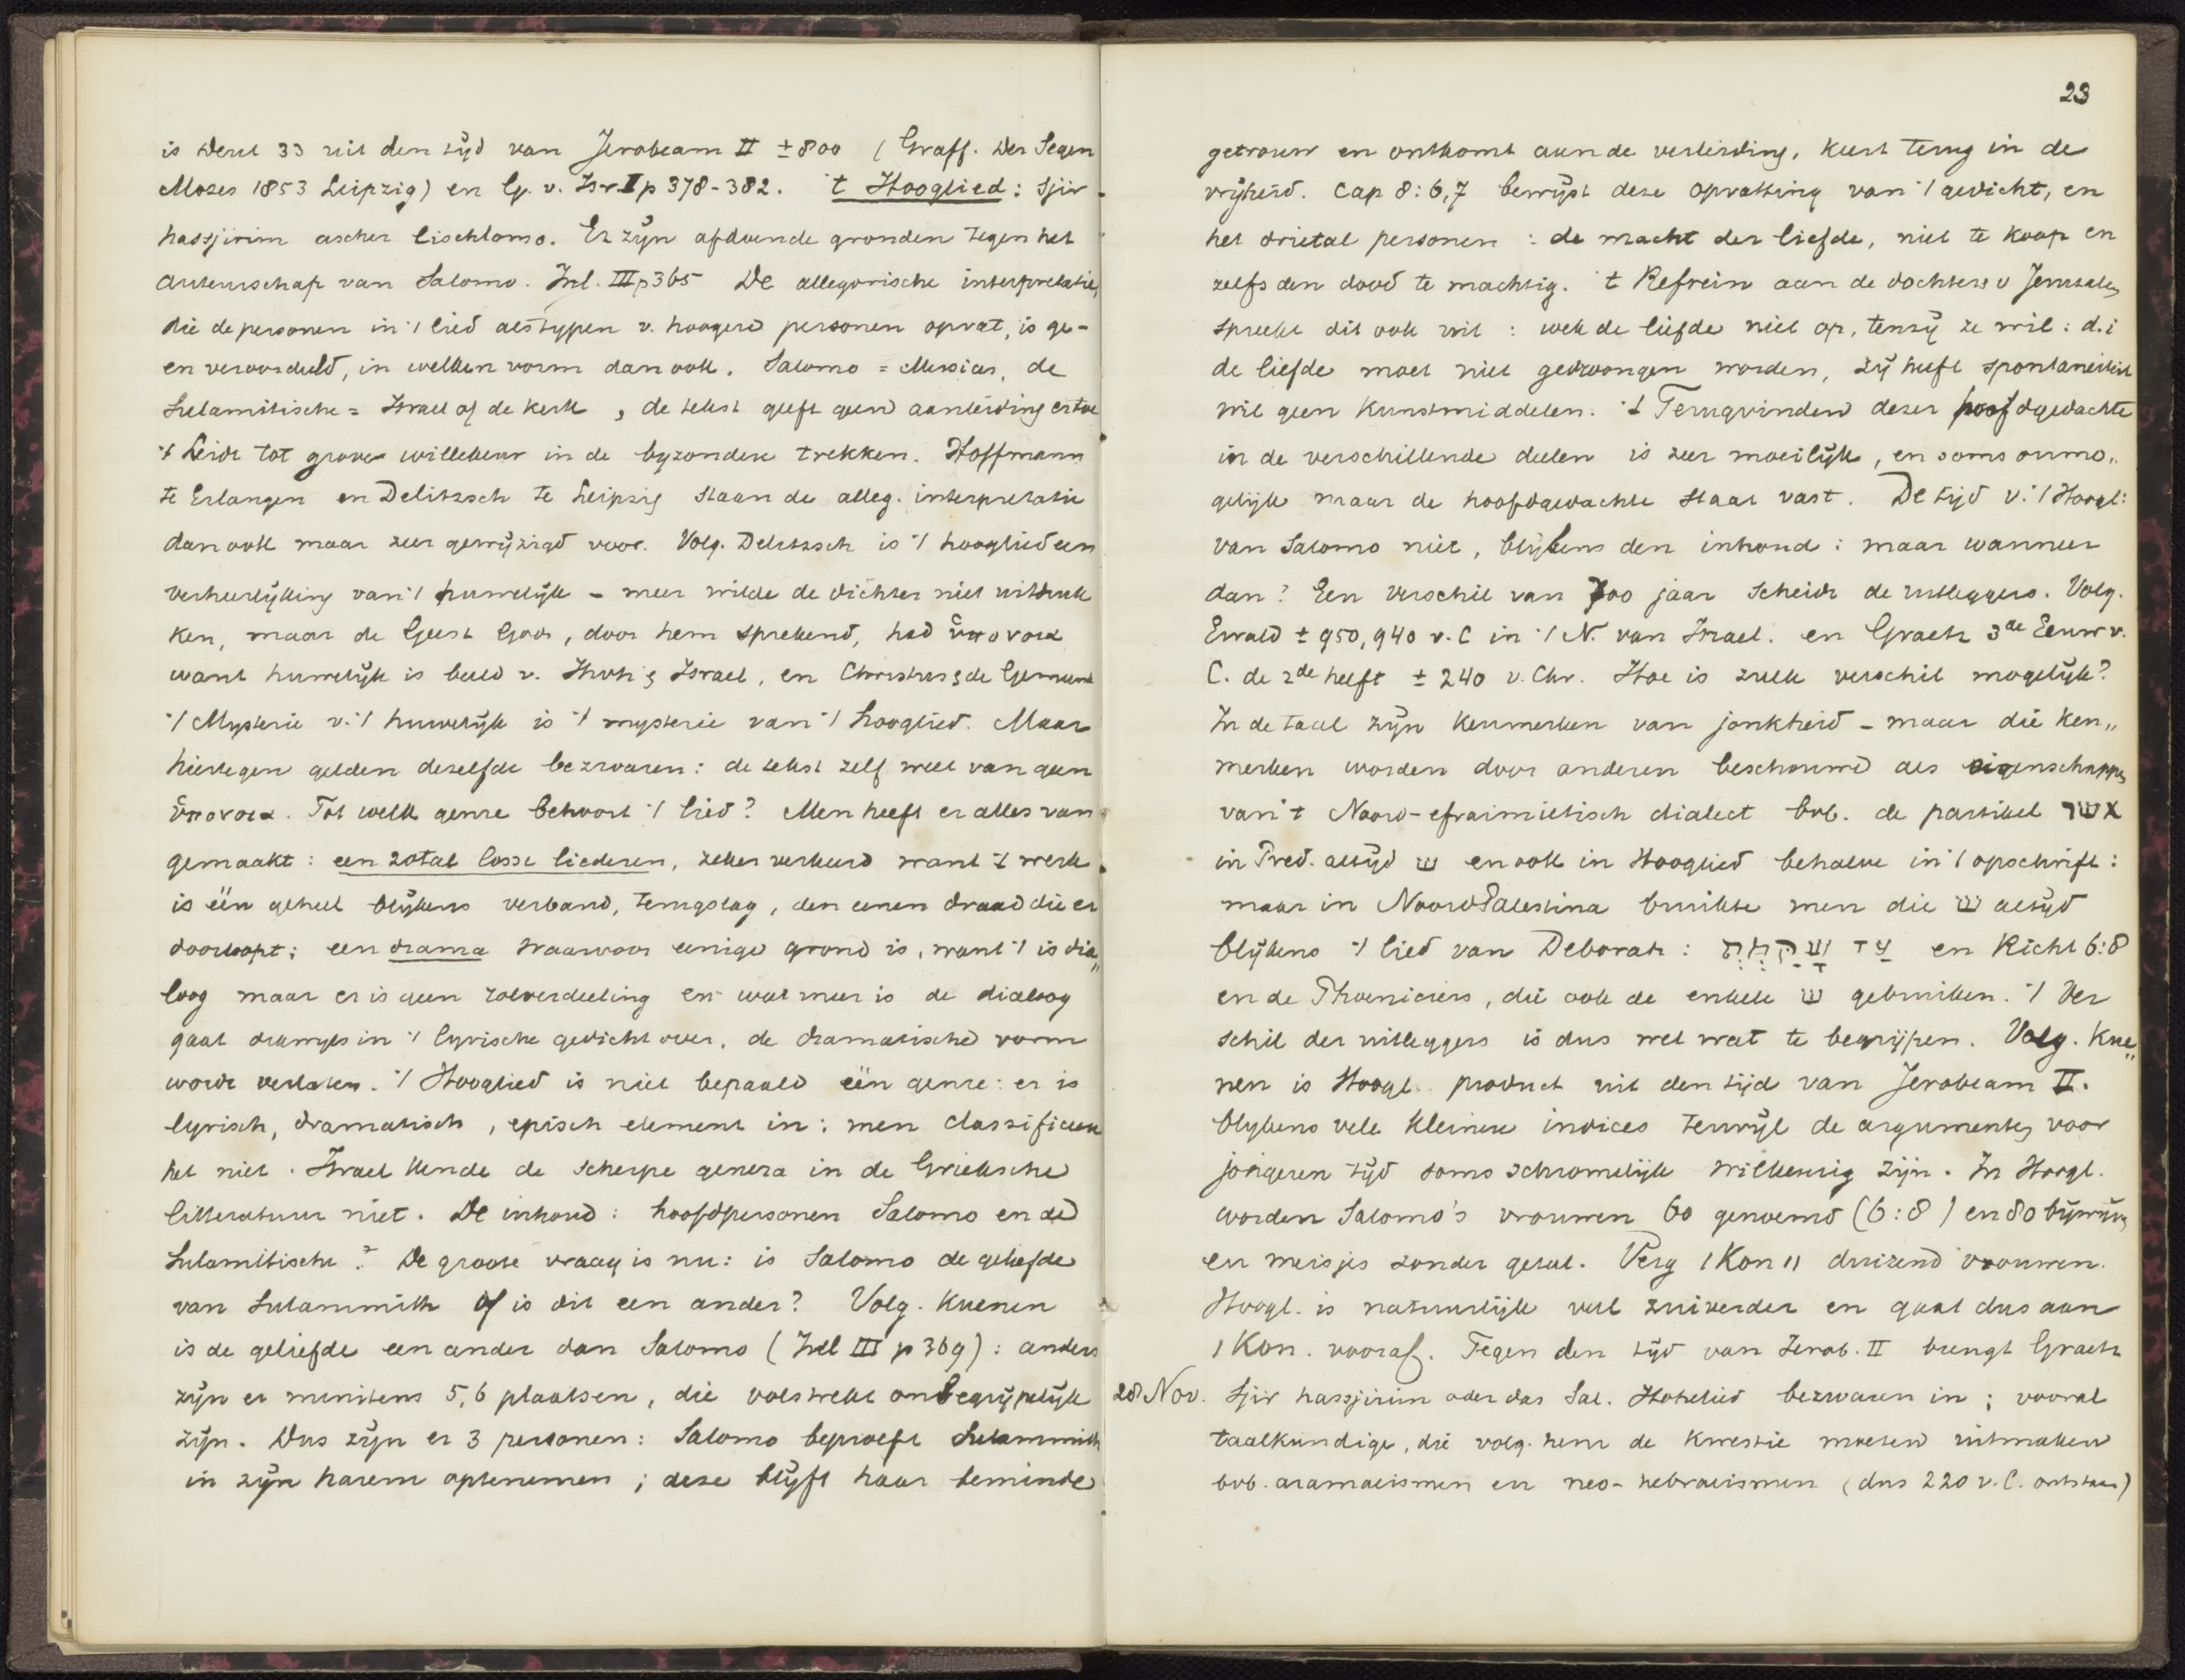 is Deut 33 uit den tijd van Jerobeam II ± 800 (Graff. Der Segen
Mozes 1853 Leipzig) en G. v. Isr. I p 378-382. 't Hooglied: Sjir
hassjirim ascher lischlomo. Er zijn afdoende gronden tegen het
auteurschap van Salomo. Inl. III p 365 De allegorische interpretatie,
die de personen in 't lied als typen v. hoogere personen opvat, is ge-
en veroordeeld, in welken vorm dan ook. Salomo = Messias, de
Sulamitische = Israel of de kerk, de tekst geeft geen aanleiding ertoe
't Leidt tot grove willekeur in de byzondere trekken. Hoffmann
te Erlangen en Delitzsch te Leipzig staan de alleg. interpretatie
dan ook maar zeer gewijzigd voor. Volg. Delitzsch is 't hooglied een
verheerlijking van 't huwelijk - meer wilde de dichter niet uitdruk
ken, maar de Geest Gods, door hem sprekend, had ὑπονοια
want huwelijk is beeld v. Jhvh & Israel, en Christus & de Gemeente
't Mysterie v. 't huwelijk is 't mysterie van 't hooglied. Maar
hiertegen gelden dezelfde bezwaren: de tekst zelf weet van geen
ὑπονοια. Tot welk genre behoort 't lied? Men heeft er alles van
gemaakt: een zotal losse liederen, zeker verkeerd want 't werk
is één geheel blijkens verband, terugslag, den eenen draad die er
doorloopt; een drama waarvoor eenige grond is, want 't is dia„
loog maar er is geen rolverdeeling en wat meer is de dialoog
gaat dikwijls in 't lyrische gedicht over, de dramatische vorm
wordt verlaten. 't Hooglied is niet bepaald één genre: er is
lyrisch, dramatisch, episch element in; men classificeere
het niet. Israel kende de scherpe genera in de Grieksche
litteratuur niet. De inhoud: hoofdpersonen Salomo en de
Sulamitische? De groote vraag is nu: is Salomo de geliefde
van Sulammith of is dit een ander? Volg. Kuenen
is de geliefde een ander dan Salomo (Inl III p 369): anders
zijn er minstens 5, 6 plaatsen, die volstrekt onbegrijpelijk
zijn. Dus zijn er 3 personen: Salomo beproeft Sulammith
in zijn harem optenemen; deze blijft haar beminde
23
getrouw en ontkomt aan de verleiding, keert terug in de
vrijheid. Cap 8:6,7 bewijst deze opvatting van 't gedicht, en
het drietal personen: de macht der liefde, niet te koop en
zelfs den dood te machtig. 't Refrein aan de dochters v Jeruzalem
spreekt dit ook uit: wek de liefde niet op, tenzij ze wil: d.i
de liefde moet niet gedwongen worden, zij heeft spontaneiteit
wil geen kunstmiddelen. 't Terugvinden dezer hoofdgedachte
in de verschillende deelen is zeer moeilijk, en soms onmo„
gelijk maar de hoofdgedachte staat vast. De tijd v. 't Hoogl:
van Salomo niet, blijkens den inhoud: maar wanneer
dan? Een verschil van 700 jaar scheidt de uitleggers. Volg.
Ewald ± 950, 940 v. C in 't N. van Israel. en Graetz 3de Eeuw v.
C. de 2de helft ± 240 v. Chr. Hoe is zulk verschil mogelijk?
In de taal zijn kenmerken van jonkheid - maar die ken„
merken worden door anderen beschouwd als eigenschappen
van 't Noord-efraimietisch dialect bvb. de partikel אשר
in Pred. altijd ש en ook in Hooglied behalve in 't opschrift:
maar in NoordPalestina bruikte men die ש altijd
blijkens 't lied van Deborah: עד שקמתי en Richt 6:8
en de Phoeniciers, die ook de enkele ש gebruiken. 't Ver
schil der uitleggers is dus wel wat te begrijpen. Volg. Kue„
nen is Hoogl. product uit den tijd van Jerobeam II.
blijkens vele kleinere indices terwijl de argumenten voor
jongeren tijd soms schromelijk willekeurig zijn. In Hoogl.
worden Salomo's vrouwen 60 genoemd (6:8) en 80 bijwijven
en meisjes zonder getal. Verg 1 Kon 11 duizend vrouwen.
Hoogl. is natuurlijk veel zuiverder en gaat dus aan
1 Kon. vooraf. Tegen den tijd van Jerob. II brengt Graetz
28 Nov. Sjir hassjirim oder das Sal. Hohelied bezwaren in; vooral
taalkundige, die volg. hem de kwestie moeten uitmaken
bvb. aramaeismen en neo-hebraeismen (dus 220 v. C. ontstaan)